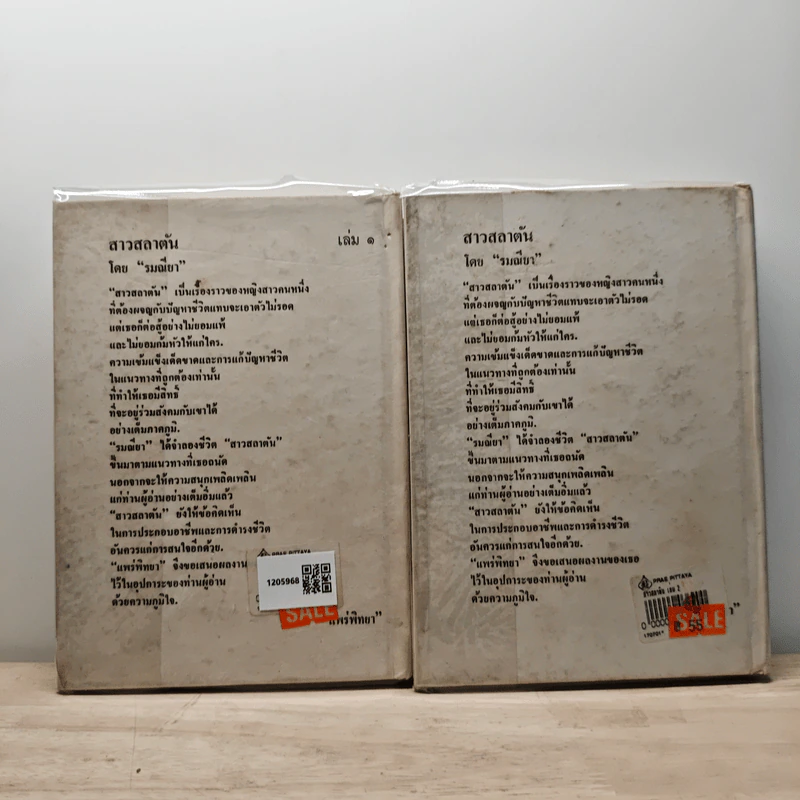 สาวสลาตัน เล่ม ๑
โดย “รมณียา”
“สาวสลาตัน” เป็นเรื่องราวของหญิงสาวคนหนึ่ง
ที่ต้องผจญกับปัญหาชีวิตแทบจะเอาตัวไม่รอด
แต่เธอก็ต่อสู้อย่างไม่ยอมแพ้
และไม่ยอมก้มหัวให้แก่ใคร.
ความเข้มแข็งเด็ดขาดและการแก้ปัญหาชีวิต
ในแนวทางที่ถูกต้องเท่านั้น
ที่ทำให้เธอมีสิทธิ์
ที่จะอยู่ร่วมสังคมกับเขาได้
อย่างเต็มภาคภูมิ.
“รมณียา” ได้จำลองชีวิต “สาวสลาตัน”
ขึ้นมาตามแนวทางที่เธอถนัด
นอกจากจะให้ความสนุกเพลิดเพลิน
แก่ท่านผู้อ่านอย่างเต็มอิ่มแล้ว
“สาวสลาตัน” ยังให้ข้อคิดเห็น
ในการประกอบอาชีพและการดำรงชีวิต
อันควรแก่การสนใจอีกด้วย.
“แพร่พิทยา” จึงขอเสนอผลงาน
ไว้ในอุปการะของท่านผู้อ่าน
ด้วยความภูมิใจ.
แพร่พิทยา”
PRAE PITTAYA
1205968
SALE
สาวสลาตัน
โดย “รมณียา”
“สาวสลาตัน” เป็นเรื่องราวของหญิงสาวคนหนึ่ง
ที่ต้องผจญกับปัญหาชีวิตแทบจะเอาตัวไม่รอด
แต่เธอก็ต่อสู้อย่างไม่ยอมแพ้
และไม่ยอมก้มหัวให้แก่ใคร.
ความเข้มแข็งเด็ดขาดและการแก้ปัญหาชีวิต
ในแนวทางที่ถูกต้องเท่านั้น
ที่ทำให้เธอมีสิทธิ์
ที่จะอยู่ร่วมสังคมกับเขาได้
อย่างเต็มภาคภูมิ.
“รมณียา” ได้จำลองชีวิต “สาวสลาตัน”
ขึ้นมาตามแนวทางที่เธอถนัด
นอกจากจะให้ความสนุกเพลิดเพลิน
แก่ท่านผู้อ่านอย่างเต็มอิ่มแล้ว
“สาวสลาตัน” ยังให้ข้อคิดเห็น
ในการประกอบอาชีพและการดำรงชีวิต
อันควรแก่การสนใจอีกด้วย.
“แพร่พิทยา” จึงขอเสนอผลงานของเธอ
ไว้ในอุปการะของท่านผู้อ่าน
ด้วยความภูมิใจ.
PRAE PITTAYA
สาวสลาตัน เล่ม 2
SALE